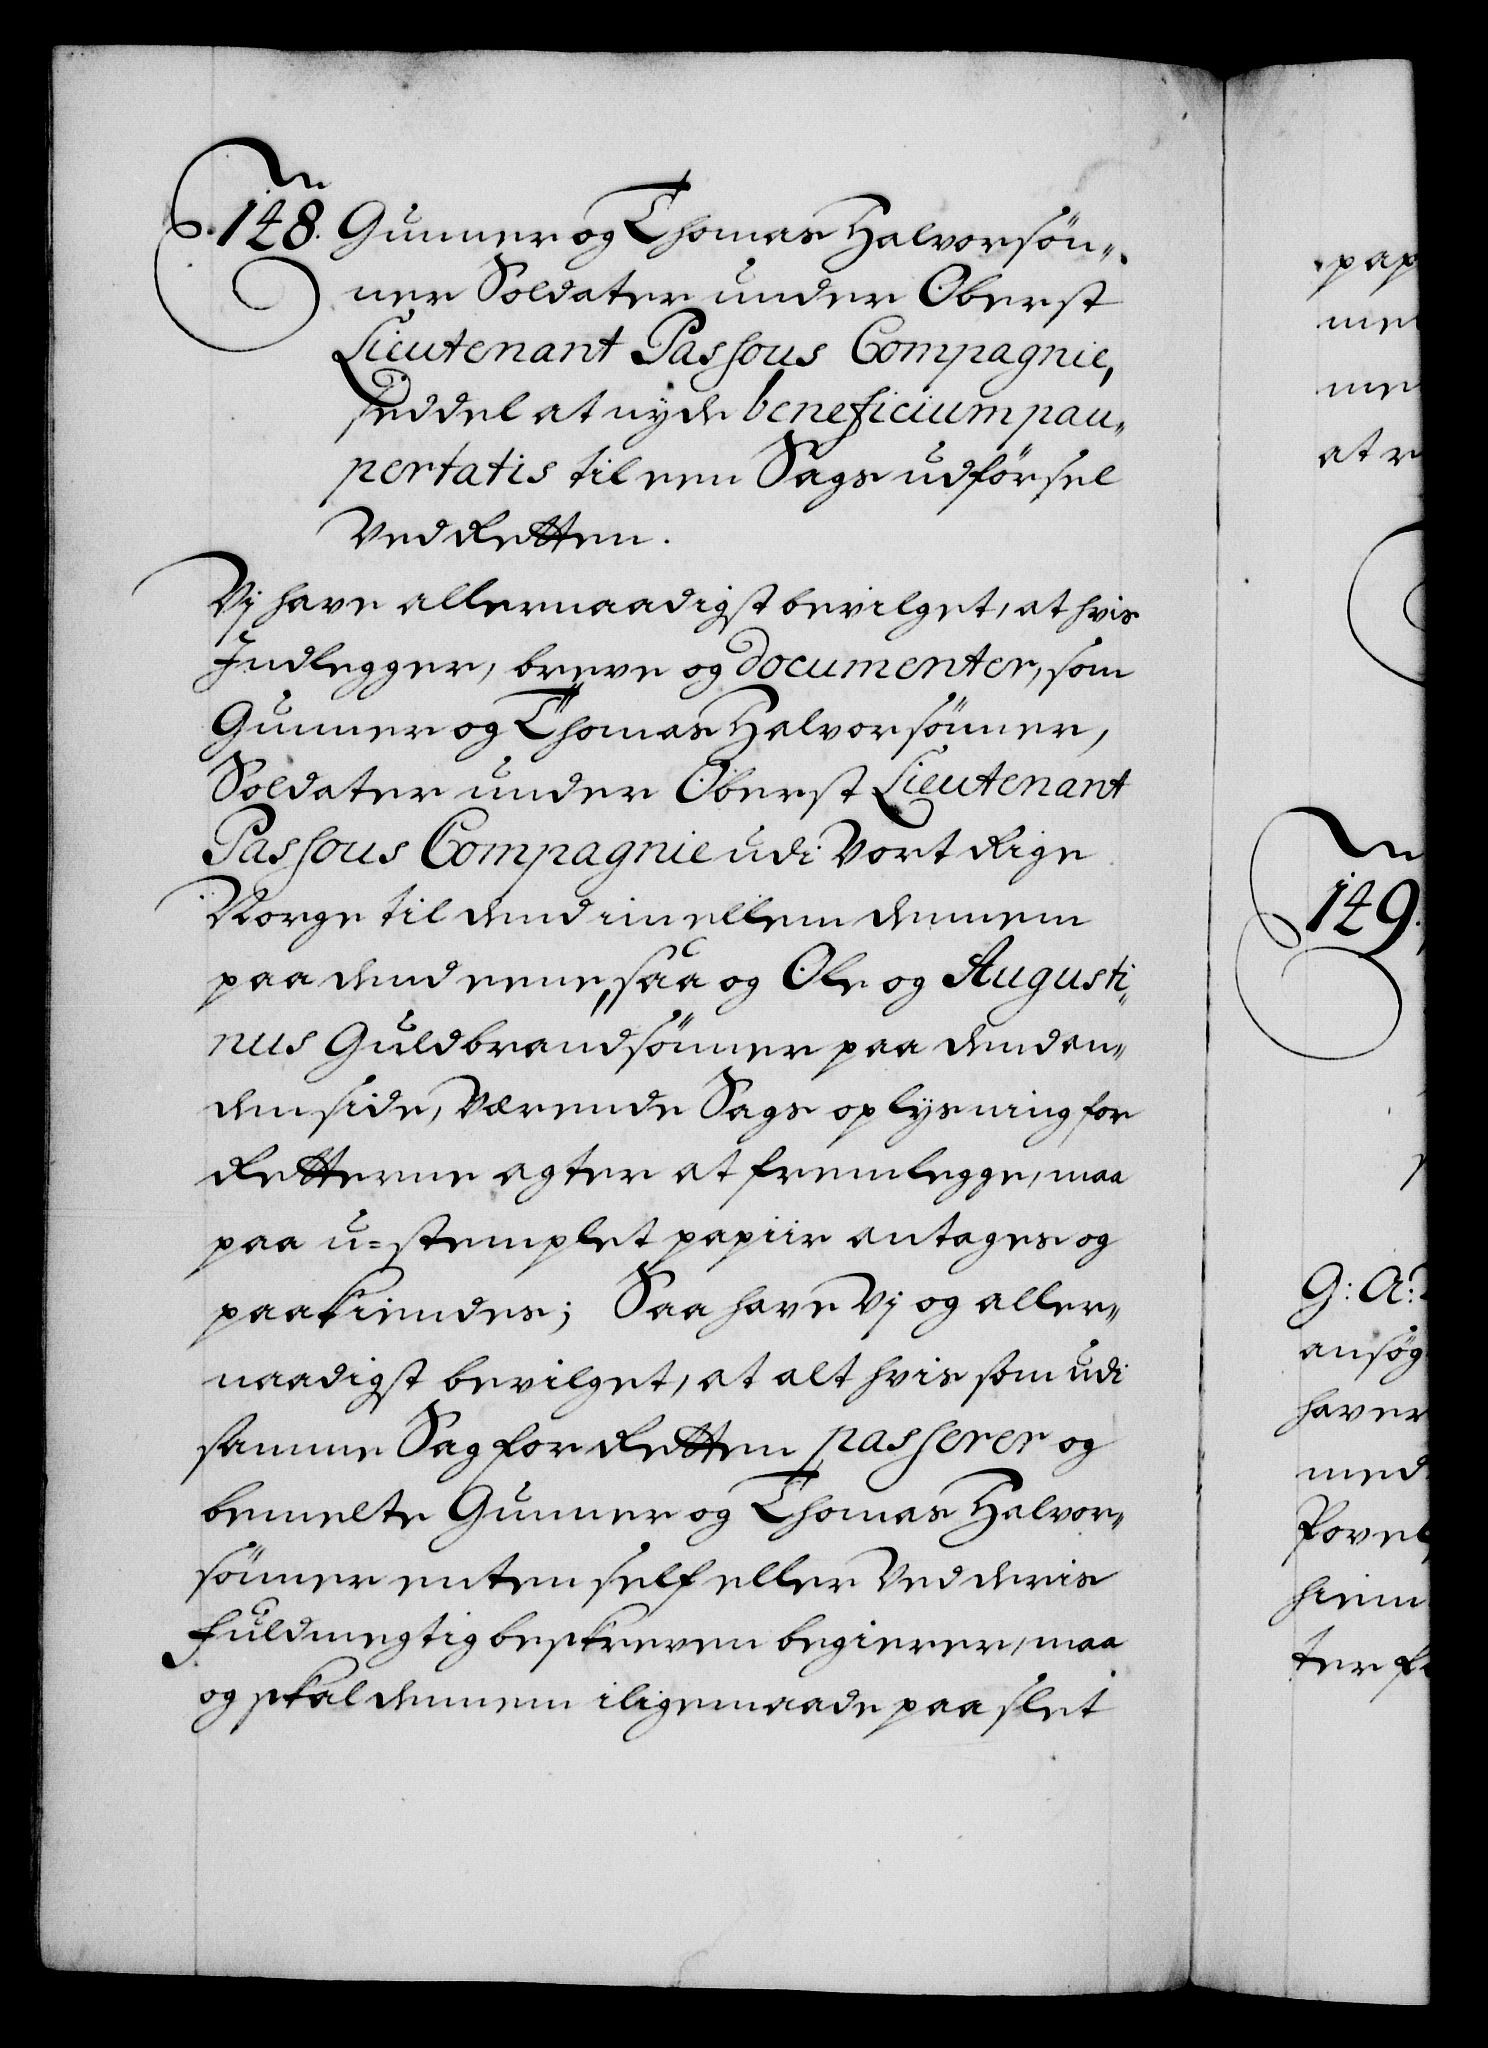 148. Gunner og Thomas Halvorsön„
ner Soldater under Oberst
Lieutenant Passous Compagnie,
seddel at nyde beneficium pau„
pertatis til een Sags udförsel
ved Retten.
Vj have allernaadigst bevilget, at hvis
Indlegger, breve og documenter, som
Gunner og Thomas Halvorsönner,
Soldater under Oberst Lieutenant
Passous Compagnie udi Vort Rige
Norge til dend imellem dennem
paa dend eene, saa og Ole og Augusti„
nus Guldbrandsönner paa dend an„
den side, værende Sags oplysning for
Retterne agter at fremlegge, maa
paa u=stemplet papiir antages og
paakiendes; Saa have Vj og aller„
naadigst bevilget, at alt hvis som udi
samme Sag for Retten passerer og
bemelte Gunner og Thomas Halvor„
sönner enten self eller ved deris
fuldmegtig beskreven begierer, maa
og skal dennem iligemaade paa slet
pap
me
me
at
149.
G: A:
ansög
haver
med
Povel
hiem
ter f